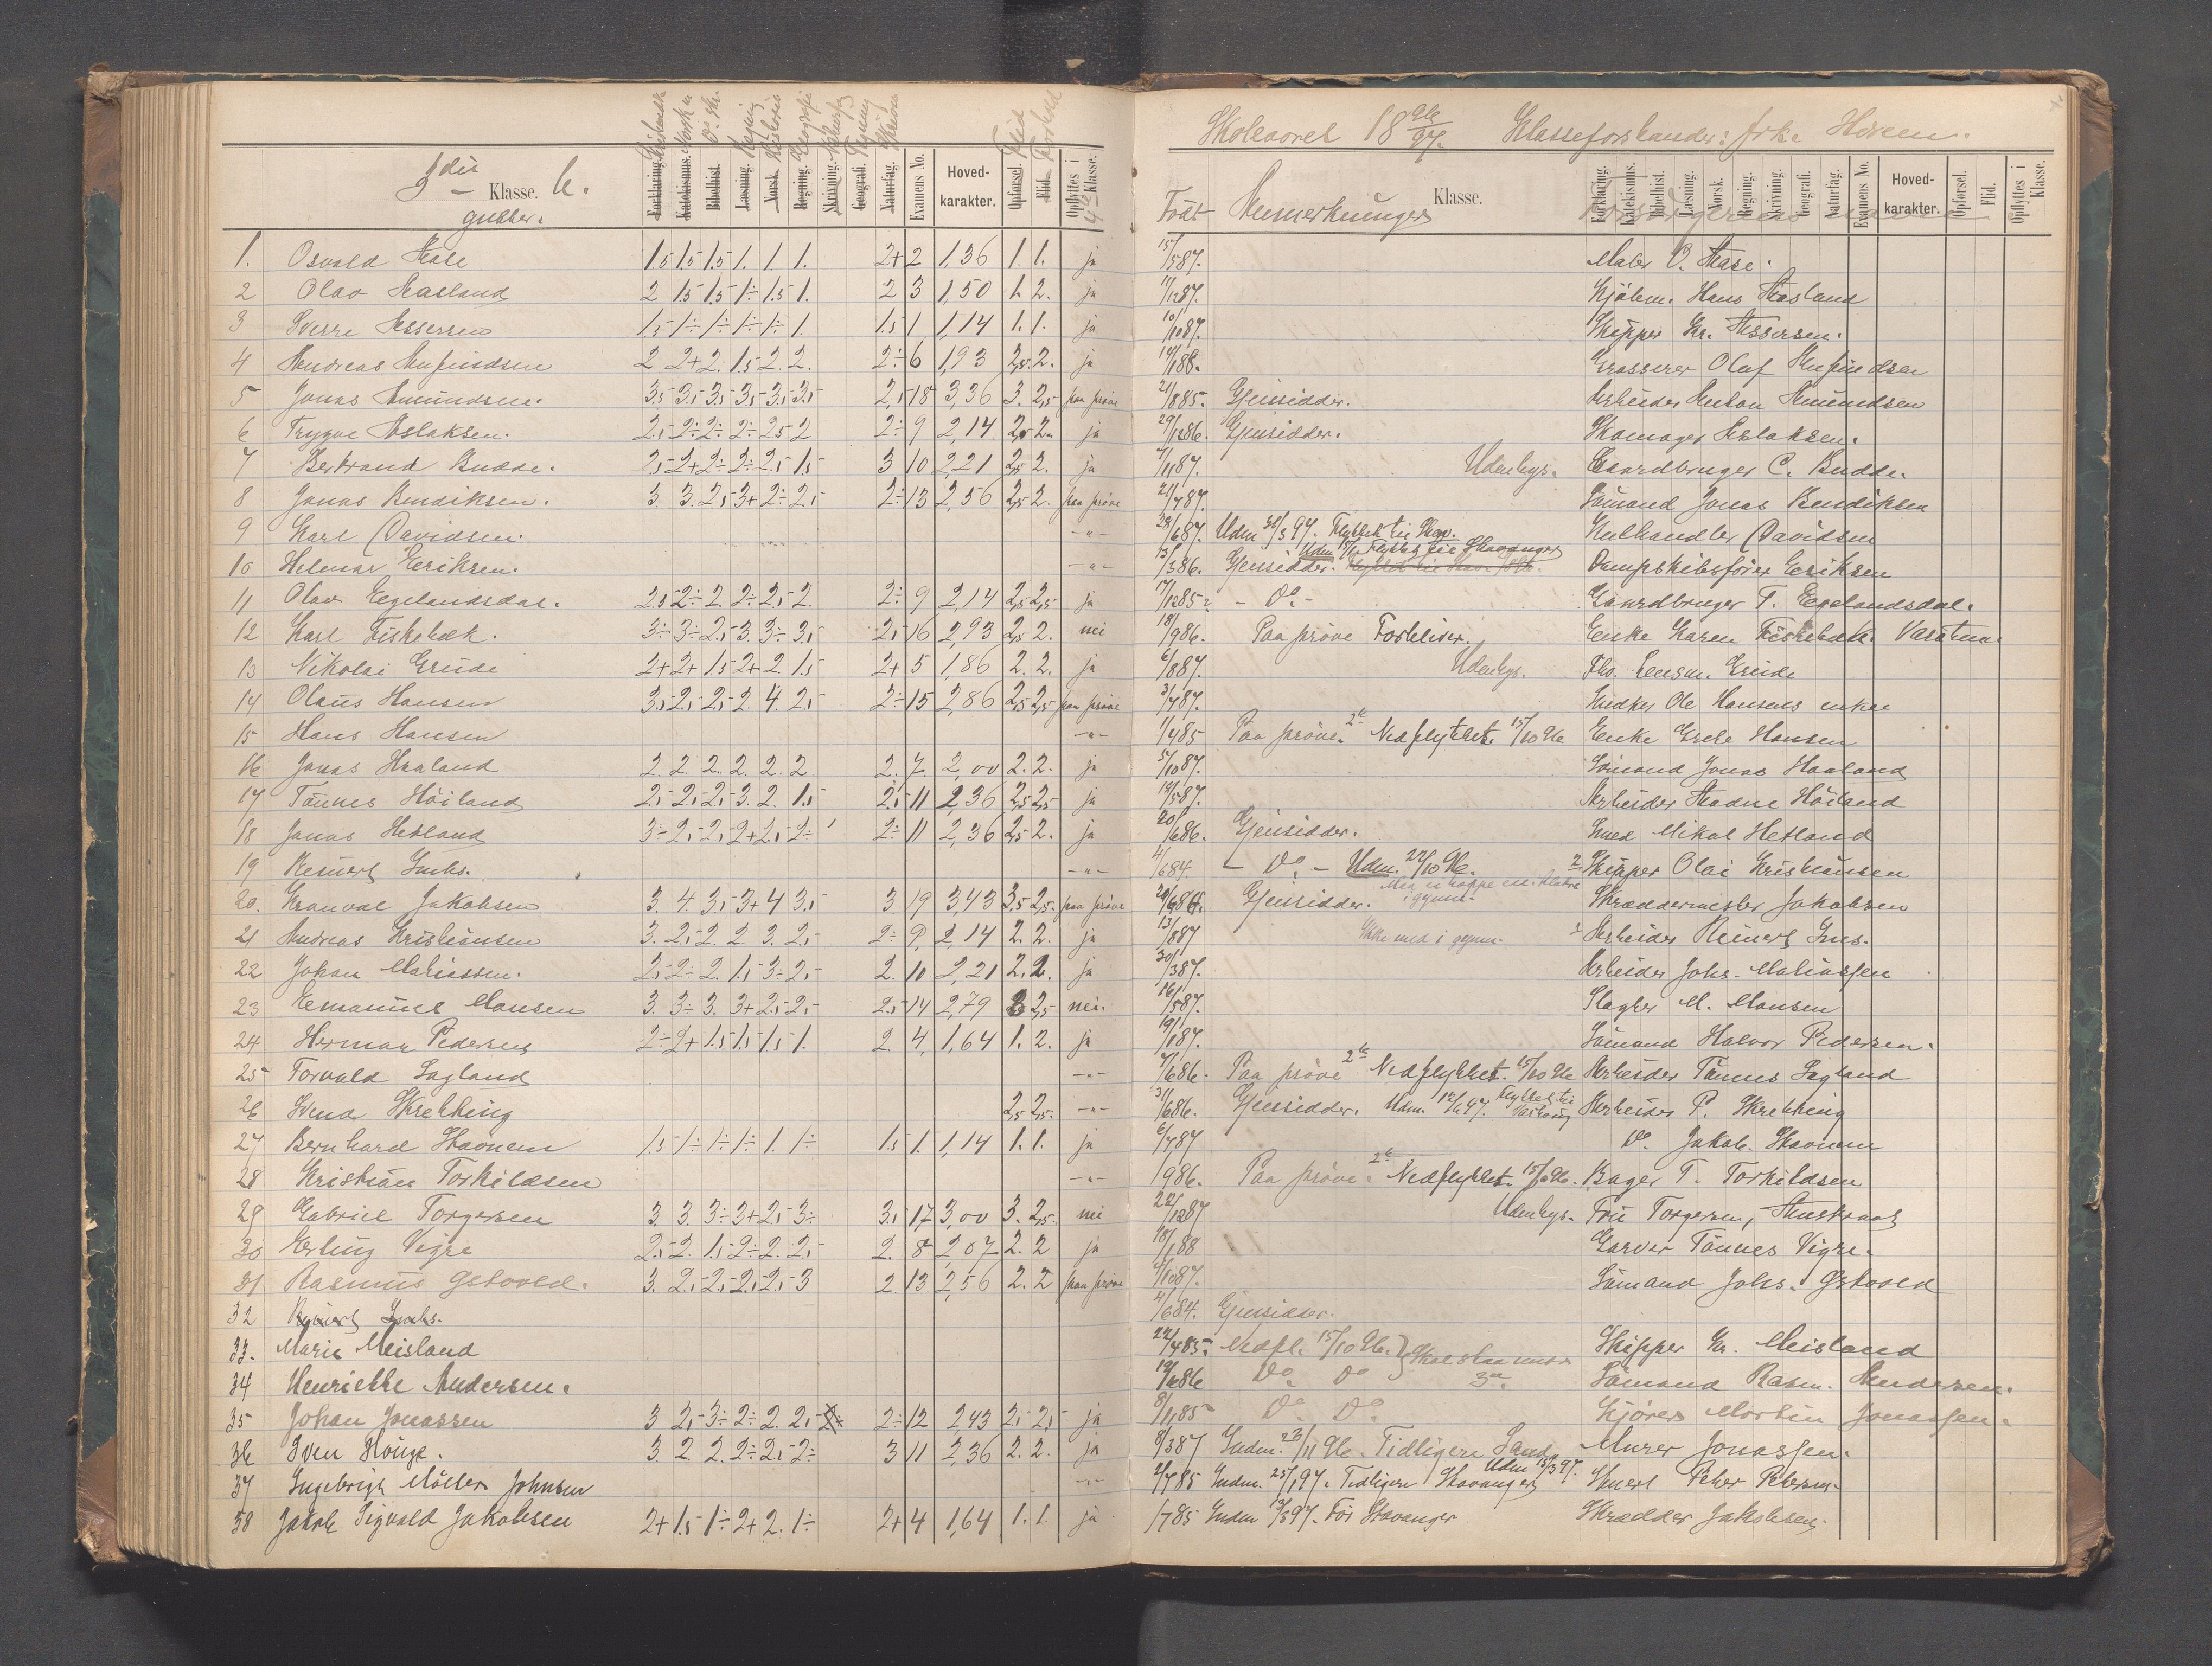 3die Klasse. b.
gutter.
Forklaring. Katekismus. Bibelhist. Læsning. Norsk. Regning. Skrivning. Geografi. Naturfag. Examens No. Hoved-karakter. Opførsel. Flid. Opflyttes i 4de Klasse.
1. Osvald Aase 1.5 1.5 1.5 1. 1. 1. 2+ 2 1,36 1. 1. ja
2 Olav Aasland 2 1.5 1.5 1÷ 1.5 1. 2 3 1,50 1. 2. ja
3 Sverre Assersen 1.5 1÷ 1÷ 1÷ 1÷ 1. 1.5 1 1,14 1. 1. ja
4 Andreas Anfindsen 2 2+ 2. 1.5 2. 2. 2÷ 6 1,93 2,5. 2. ja
5 Jonas Amundsen. 3.5 3.5 3.5 3.5 3.5 3.5 2,5 18 3,36 3. 2,5 paa prøve
6 Trygve Aslaksen. 2.5 2÷ 2÷ 2÷ 2.5 2 2÷ 9 2,14 2,5 2. ja
7 Bertrand Budde. 2.5 2+ 2÷ 2÷ 2.5 1.5 3 10 2,21 2,5 2. ja
8 Jonas Bendiksen. 3. 3. 2.5 3+ 2÷ 2.5 2÷ 13 2,56 2,5 2. paa prøve
9 Karl Davidsen. -"-
10 Helmar Eriksen. -"-
11 Olav Egelandsdal. 2.5 2÷ 2. 2÷ 2.5 2. 2÷ 9 2,14 2,5 2,5 ja
12 Karl Fiskebæk. 3÷ 3÷ 2.5 3. 3÷ 3.5 2.5 16 2,93 2,5 2. nei
13 Nikolai Grude 2+ 2+ 1.5 2+ 2. 1.5 2+ 5 1,86 2. 2. ja
14 Olaus Hansen 3.5 2.5 2.5 2. 4. 2.5 2÷ 15 2,86 2,5 2,5 paa prøve
15 Hans Hansen -"-
16 Jonas Haaland 2. 2. 2. 2. 2. 2 2. 7. 2,00 2. 2. ja
17 Tønnes Höiland 2.5 2.5 2.5 3. 2. 1.5 2.5 11 2,36 2,5 2,5 ja
18 Jonas Hetland 3÷ 2.5 2.5 2+ 2.5 2÷ 2÷ 11 2,36 2,5 2. ja
19 Reinert Imhs. -"-
20. Granval Jakobsen 3. 4. 3.5 3+ 4 3.5 3 19 3,43 3,5 2,5. paa prøve
21 Andreas Kristiansen 3. 2.5 2. 2. 3. 2.5 2÷ 9. 2,14 2. 2. ja
22 Johan Matiassen. 2.5 2÷ 2. 1.5 3÷ 2.5 2. 10 2,21 2. 2. ja
23 Emanuel Monsen 3. 3÷ 3. 3+ 2.5 2.5 2.5 14 2,79 3 2,5 nei.
24 Herman Pedersen 2÷ 2+ 1.5 1.5 1.5 1. 2. 4. 1,64 1. 2. ja
25 Torvald Sagland -"-
26 Svend Skretting 2,5 2,5. -"-
27 Bernhard Stavnem 1.5 1÷ 1÷ 1÷ 1. 1÷ 1.5 1. 1,14 1. 1. ja
28 Kristian Torkildsen -"-
29 Gabriel Torgersen 3. 3. 3÷ 3+ 2.5 3÷ 3.5 17 3,00 3. 2,5. nei
30 Erling Vigre 2.5 2. 1.5 2÷ 2. 2.5 2. 8 2,07 2. 2 ja
31 Rasmus Østvold. 3. 2.5 2.5 2.5 2.5 3 2. 13 2,56 2. 2 paa prøve
32 Reinert Imhs.
33. Marie Meisland
34 Henriette Andersen.
35 Johan Jonassen 3 2.5 3÷ 2÷ 2. 2.5 2÷ 12 2,43 2.5 2.5 ja
36 Sven Hauge. 3. 2. 2. 2÷ 2.5 2÷ 3 11 2,36 2. 2. ja
37 Ingebrigt Möller Johnsen -"-
38 Jakob Sigvald Jakobsen 2+ 1.5 1÷ 2+ 2. 1÷ 2+ 4 1,64 1. 1. ja
Skoleaaret 1896/97. Klasseforstander: frk.
Født Anmerkninger Klasse.
Forklaring. Katekismus. Bibelhist. Læsning. Norsk. Regning. Skrivning. Geografi. Naturfag. Examens No. Hoved-karakter. Opførsel. Flid. Opflyttes i Klasse.
15/5 87. Maler O. Aase.
17/12 87. Kjøbm. Hans Aasland
10/10 87. Skipper Kr. Assersen.
14/1 88. Grosserer Olaf Anfindsen
21/8 85. Gjensidder. Arbeider Anton Amundsen
29/12 86. Gjensidder. Skomager Aslaksen.
7/11 87. Udenbys. Gaardbruger C. Budde.
21/7 87. Sömand Jonas Bendiksen
28/6 87. Udm 30/3 97. Flyttet til Stav. Kulhandler Davidsen
13/3 86. Gjensidder. Udm Flyttet til Stavanger Dampskibsfører Eriksen
17/12 85. - Do. - Gaardbruger T. Egelandsdal.
18/9 86. Paa prøve Forbliver. Enke Karen Fiskebæk. Varatun.
6/8 87. Udenbys. Fhv. Lensm. Grude
3/7 87. Snedker Ole Hansens enke
1/4 85 Paa prøve. Nedflyttet. 15/10 96 Enke Grete Hansen
5/10 87. Sömand Jonas Haaland
18/5 87. Arbeider Aadne Höiland
20/6 86. Gjensidder. Smed Mikal Hetland
4/6 84. - Do. - Udm. 27/10 96. Skipper Olai Kristiansen
20/6 86. Gjensidder. i gymn. Skræddermester Jakobsen
13/8 87 Ikke med i gymn. Arbeider Reinert Ims.
30/3 87. Arbeider Johs. Matiassen
16/5 87. Slagter M. Monsen
19/1 87. Sömand Halvor Pedersen.
7/6 86. Paa prøve Nedflyttet. 15/10 96 Arbeider Tönnes Sagland
31/6 86. Gjensidder. Udm. 12/1 97. Flyttet til Arbeider P. Skretting
6/7 87 Do. Jakob. Stavnem
19 86. Paa prøve. Nedflyttet. 15/10 96. Bager T. Torkildsen
22/12 87 Udenbys. Fru Torgersen, Austraat
18/1 88 Garver Tönnes Vigre.
4/10 87. Sömand Johs. Østvold
4/6 84. Gjensidder.
22/4 85. Nedfl. 15/10 96. Skal staa under Skipper Kr. Meisland
19/6 86 Do Do 3a. Sömand Rasm. Andersen.
8/1 85 Do. Do. Kjører Martin Jonassen.
8/3 87 Indm. 23/11 96. Tidligere Murer Jonassen.
2/7 85 Indm. 25/1 97. Tidligere Stavanger Udm 15/3 97. Peter Petersen.
1/7 85 Indm 13/3 97. Før Stavanger Skrædder Jakobsen.